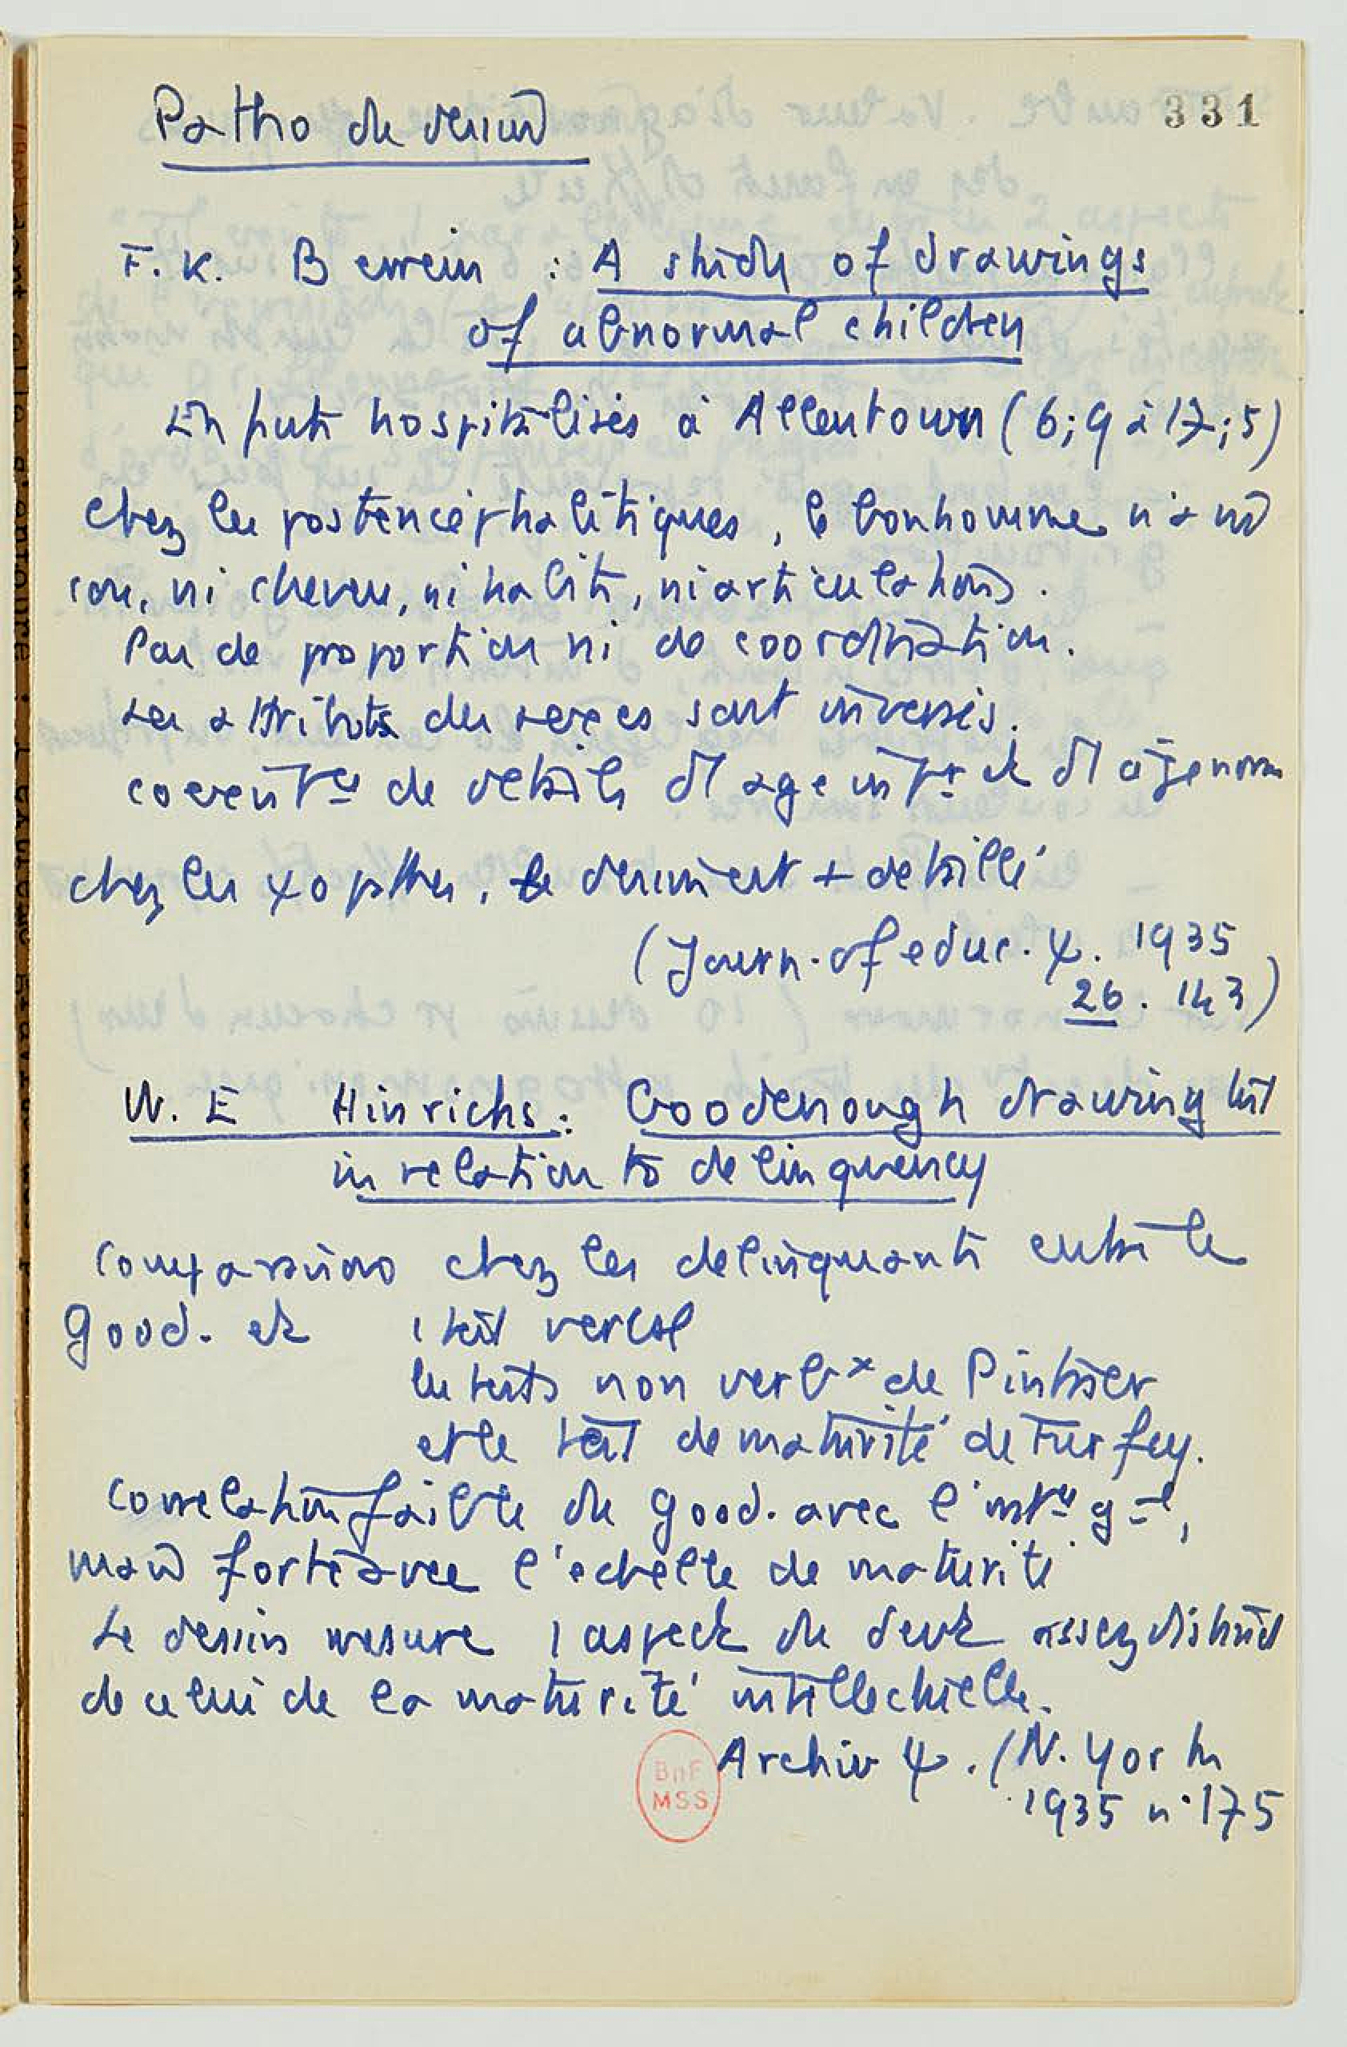 331
Patho du dessin
F. K. Berrien : A study of drawings
of abnormal children
Enfants hospitalisés à Allentown (6;9 à 17;5)
chez les postencéphalitiques, le bonhomme n'a ni
cou, ni cheveu, ni habits, ni articulations.
Pas de proportion ni de coordination.
Les attributs des sexes sont inversés.
de détails d'l'age et d'l'âge norm
chez les ψopathes, le dessin est + détaillé
(Journ. of educ. ψ. 1935
26. 143)
W. E Hinrichs: Goodenough drawing test
in relation to delinquency
Comparaisons chez les délinquants entre le
Good. et 1 test verbal
les tests non verbx de Pintner
et le test de maturité de Furfey.
Correlation faible du Good. avec l'
mais forte avec l'échelle de maturité
Le dessin mesure 1 aspect du devt assez distinct
de celui de la maturité intellectuelle.
Archiv ψ. (N. York
1935 n° 175
BnF
MSS